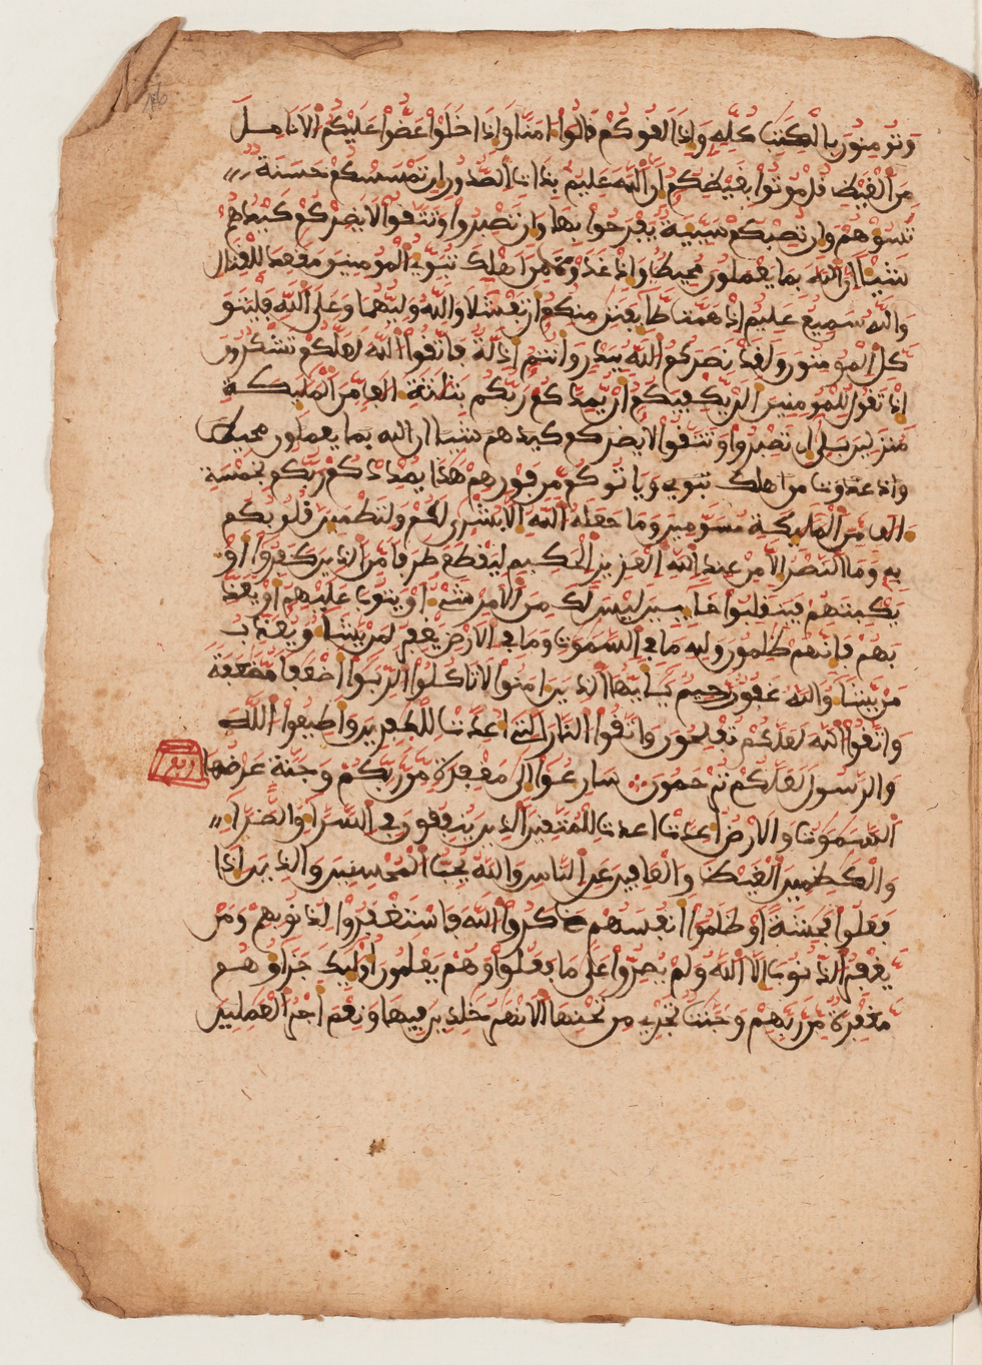 وتومنون بالكتب كله واذا لقوكم قالوا امنا واذا خلوا عضوا عليكم الانامل
من الغيظ قل موتوا بغيظكم ان الله عليم بذات الصدور ان تمسسكم حسنة
تسوهم وان تصبكم سيية يفرحوا بها وان تصبروا وتتقوا لا يضركم كيدهم
شيا ان الله بما يعملون محيط واذ غدوت من اهلك تبوى المومنين مقعد للقتال
والله سميع عليم اذ همت طايفتن منكم ان تفشلا والله وليهما وعلى الله فليتو
كل المومنون ولقد نصركم الله ببدر وانتم اذلة فاتقوا الله لعلكم تشكرون
اذ تقول للمومنين الن يكفيكم ان يمدكم ربكم بثلثة الف من المليكة
منزلين بلى ان تصبروا وتتقوا لا يضركم كيدهم شيا ان الله بما يعملون محيط
واذ غدوت من اهلك تبوى وياتوكم من فورهم هذا يمددكم ربكم بخمسة
الف من المليكة مسومين وما جعله الله الا بشرى لكم ولتطمين قلوبكم
به وما النصر الا من عند الله العزيز الحكيم ليقطع طرفا من الذين كفروا او
يكبتهم فينقلبوا خايبين ليس لك من الامر شى او يتوب عليهم او يعذ
بهم فانهم ظلمون ولله ما في السموت وما في الارض يغفر لمن يشا ويعذب
من يشا والله غفور رحيم يايها الذين امنوا لا تاكلوا الربوا اضعفا مضعفة
واتقوا الله لعلكم تفلحون واتقوا النار التى اعدت للكفرين واطيعوا الله
والرسول لعلكم ترحمون سارعوا الى مغفرة من ربكم وجنة عرضها
ربع
السموت والارض اعدت اعدت للمتقين الذين ينفقون في السرا والضرا
والكظمين الغيظ والعافين عن الناس والله يحب المحسنين والذين اذا
فعلوا فحشة او ظلموا انفسهم ذكروا الله فاستغفروا لذنوبهم ومن
يغفر الذنوب الا الله ولم يصروا على ما فعلوا وهم يعلمون اوليك جزاوهم
مغفرة من ربهم وجنت تجرى من تحتها الانهر خلدين فيها ونعم اجر العملين